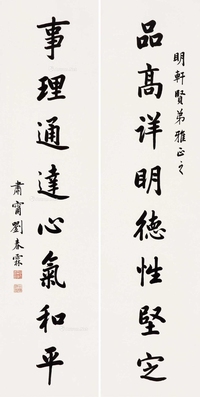 明軒賢弟雅正之
品高详明德性堅定
事理通達心氣和平
肅甯劉春霖